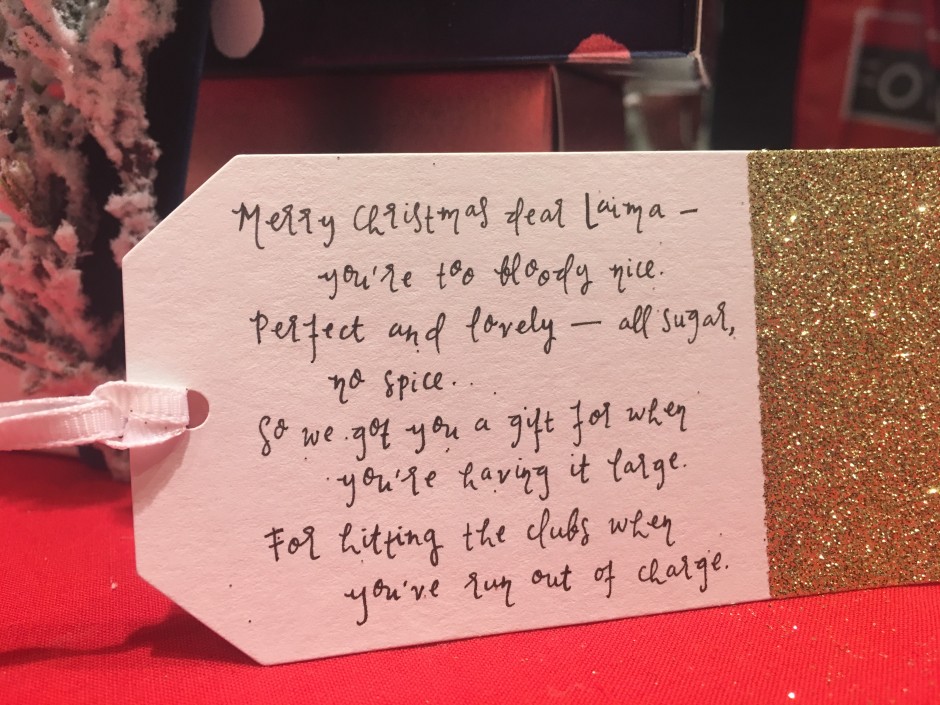 Merry Christmas dear Laima —
you're too bloody nice.
Perfect and lovely — all sugar,
no spice..
So we got you a gift for when
you're having it large.
For hitting the clubs when
you've run out of charge.